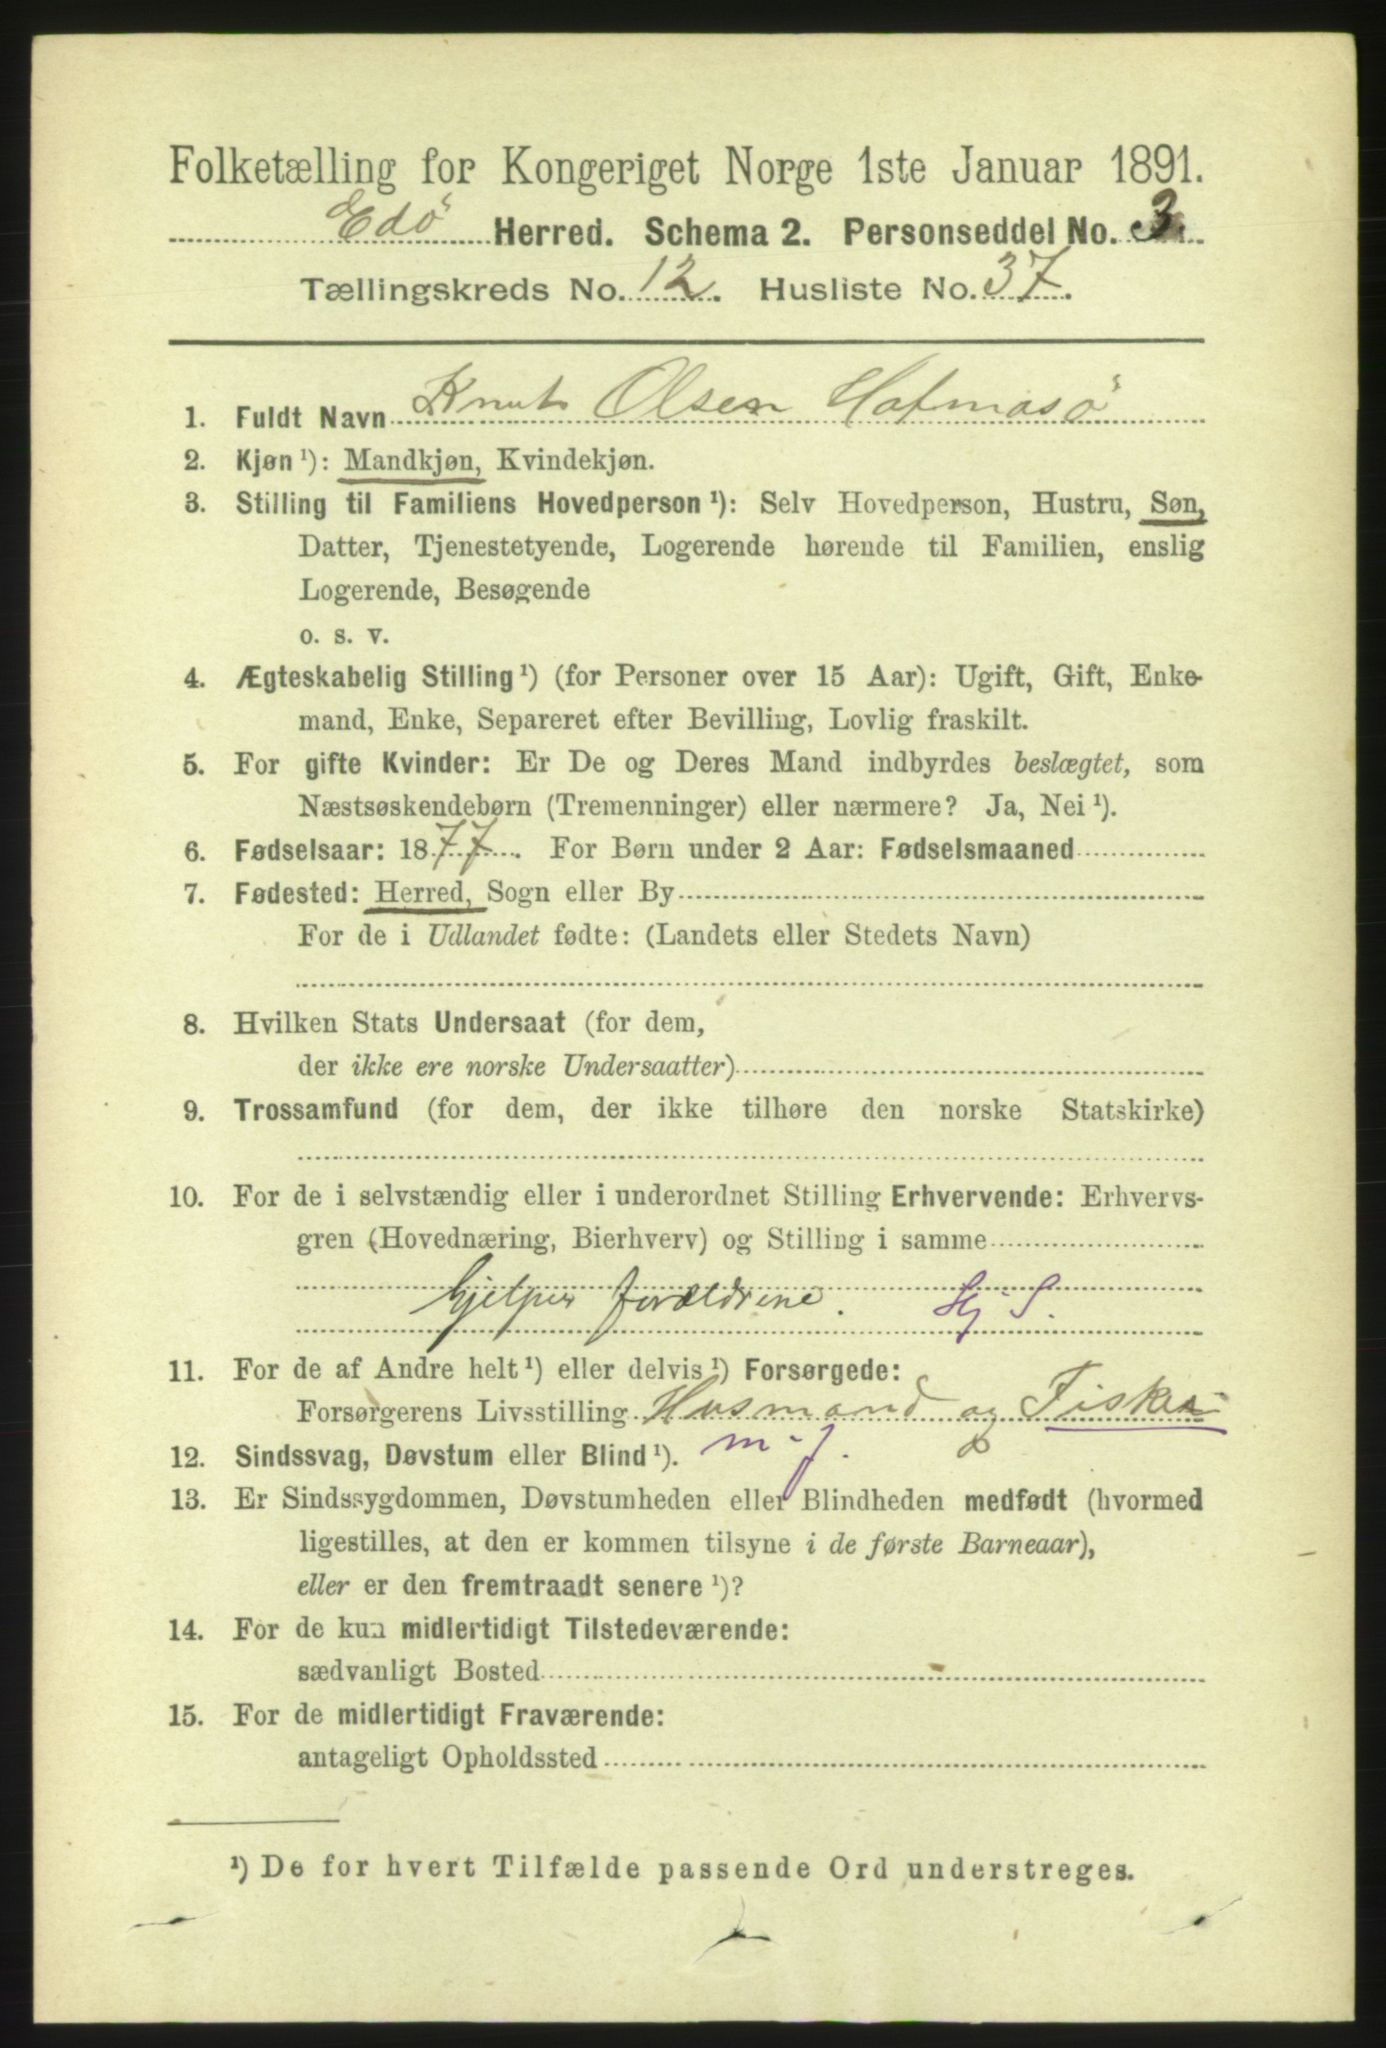 Folketælling for Kongeriget Norge 1ste Januar 1891.
Edö Herred. Schema 2. Personseddel No. 3.
Tællingskreds No. 12. Husliste No. 37.
1. Fuldt Navn Knut Olsen Hafmasö
2. Kjøn ¹): Mandkjøn, Kvindekjøn.
3. Stilling til Familiens Hovedperson ¹): Selv Hovedperson, Hustru, Søn,
Datter, Tjenestetyende, Logerende hørende til Familien, enslig
Logerende, Besøgende
o. s. v.
4. Ægteskabelig Stilling ¹) (for Personer over 15 Aar): Ugift, Gift, Enke-
mand, Enke, Separeret efter Bevilling, Lovlig fraskilt.
5. For gifte Kvinder: Er De og Deres Mand indbyrdes beslægtet, som
Næstsøskendebørn (Tremenninger) eller nærmere? Ja, Nei ¹).
6. Fødselsaar: 1877. For Børn under 2 Aar: Fødselsmaaned
7. Fødested: Herred, Sogn eller By
For de i Udlandet fødte: (Landets eller Stedets Navn)
8. Hvilken Stats Undersaat (for dem,
der ikke ere norske Undersaatter)
9. Trossamfund (for dem, der ikke tilhøre den norske Statskirke)
10. For de i selvstændig eller i underordnet Stilling Erhvervende: Erhvervs-
gren (Hovednæring, Bierhverv) og Stilling i samme
Hjelper forældrene. Hj S.
11. For de af Andre helt ¹) eller delvis ¹) Forsørgede:
Forsørgerens Livsstilling Husmand og Fisker
12. Sindssvag, Døvstum eller Blind ¹). m-j.
13. Er Sindssygdommen, Døvstumheden eller Blindheden medfødt (hvormed
ligestilles, at den er kommen tilsyne i de første Barneaar),
eller er den fremtraadt senere ¹)?
14. For de kun midlertidigt Tilstedeværende:
sædvanligt Bosted
15. For de midlertidigt Fraværende:
antageligt Opholdssted
¹) De for hvert Tilfælde passende Ord understreges.